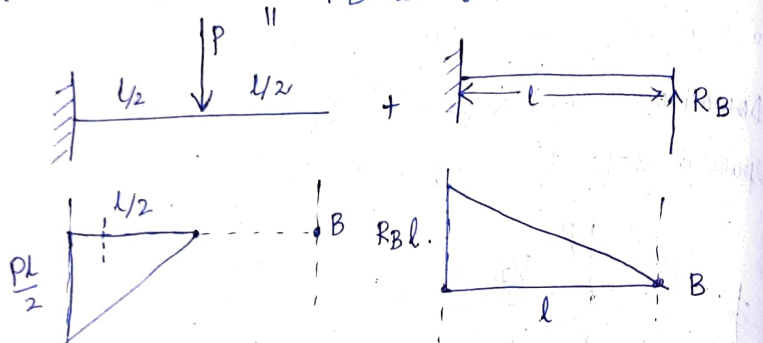 P
l/2
l/2
+
l
R_B
l/2
B
Pl/2
R_B l.
B
l